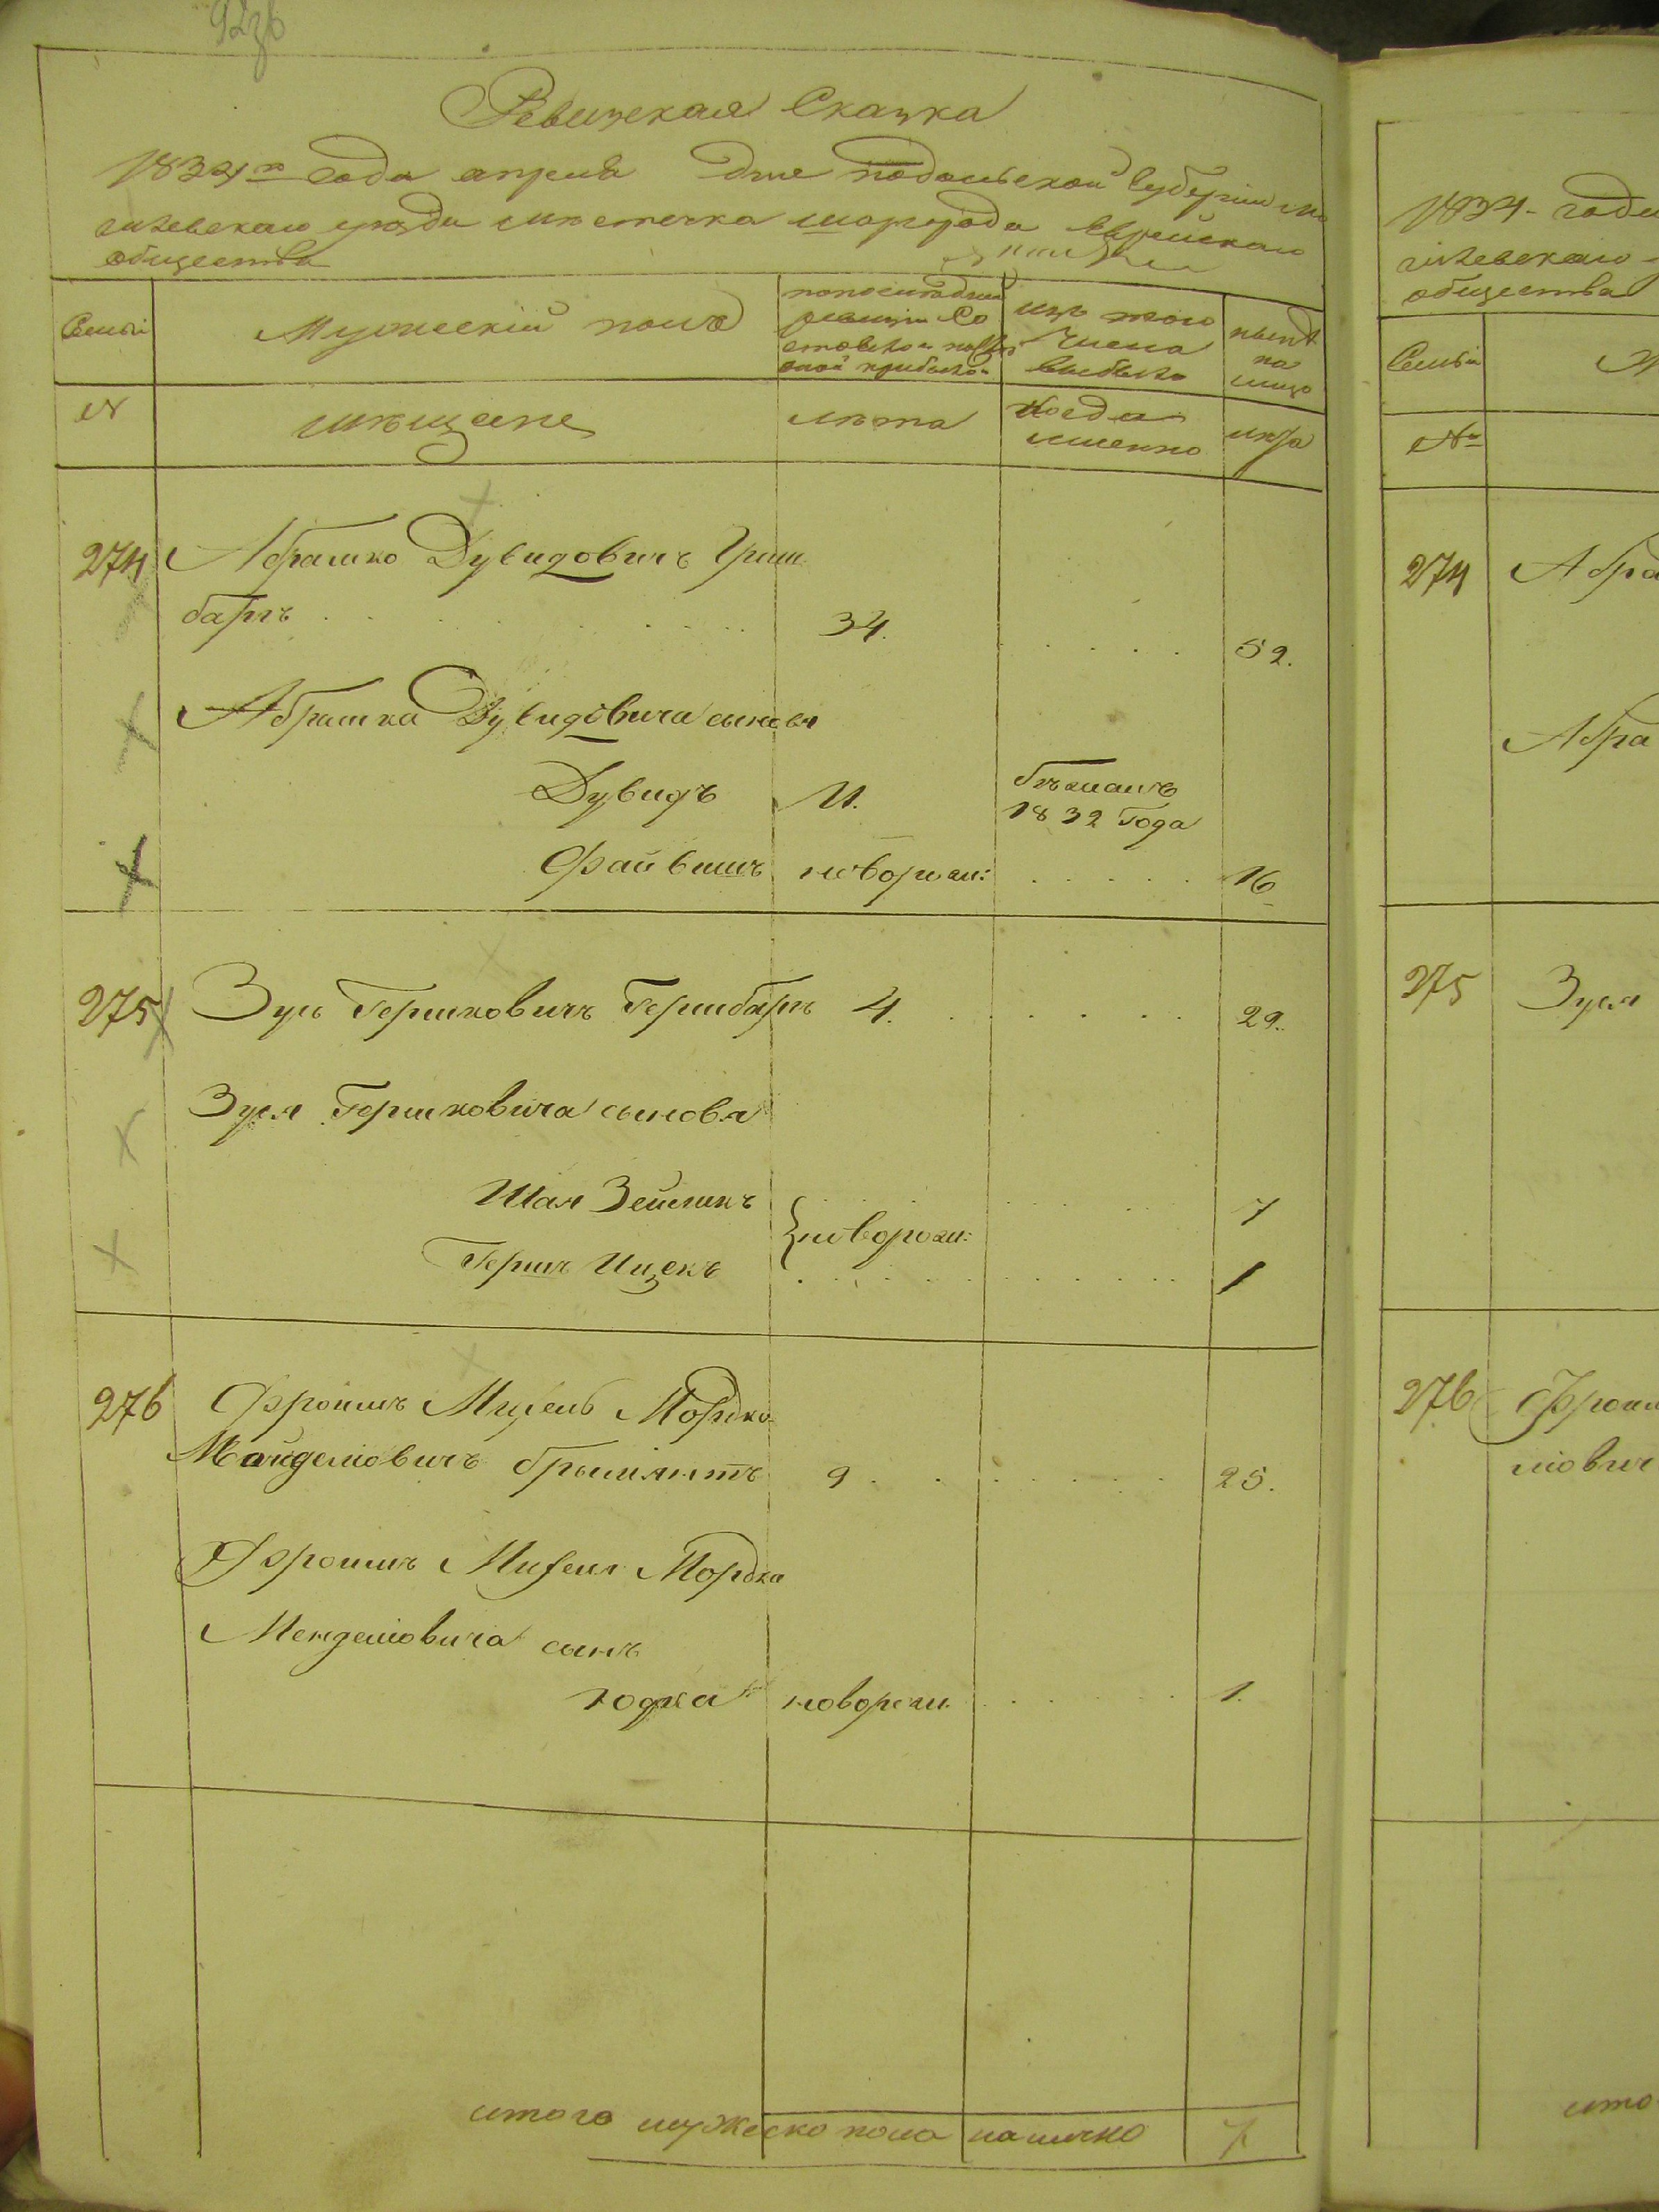 Ревизская Сказка
1834го года апреля дня подольской губернии мо
гилевскаго уезда местечка шаргорода Еврейскаго
общества
Семьи
Мужескій полъ
по последней
ревизіи со
стояло и после
оной прибыло
изъ того
числа
выбыло
ныне
на
лицо
№
мещане
лета
когда
именно
лета
274
Абрамко Дувидовичъ Грин
баргъ
34.
52.
Абрамка Дувидовича сыновья
Дувидъ
11.
бежалъ
1832 года
Файвишъ
новорож:
16
275
Зусь Гершковичъ Геринбаргъ
4.
29.
Зуся Гершковича сыновя
Шая Зейликъ
новорож:
7
Гершъ Ицекъ
1
276
Фроимъ Мордко
Майделіовичъ
9
25.
Фроимъ Мордка
Менделіовича сынъ
новорож.
1.
итого мужеска пола налично
7
1834- года
гилевскаго-
общества
Семьи
М
№
274
Абра
Абра
275
Зуся
276
Фроим
ліович
ито